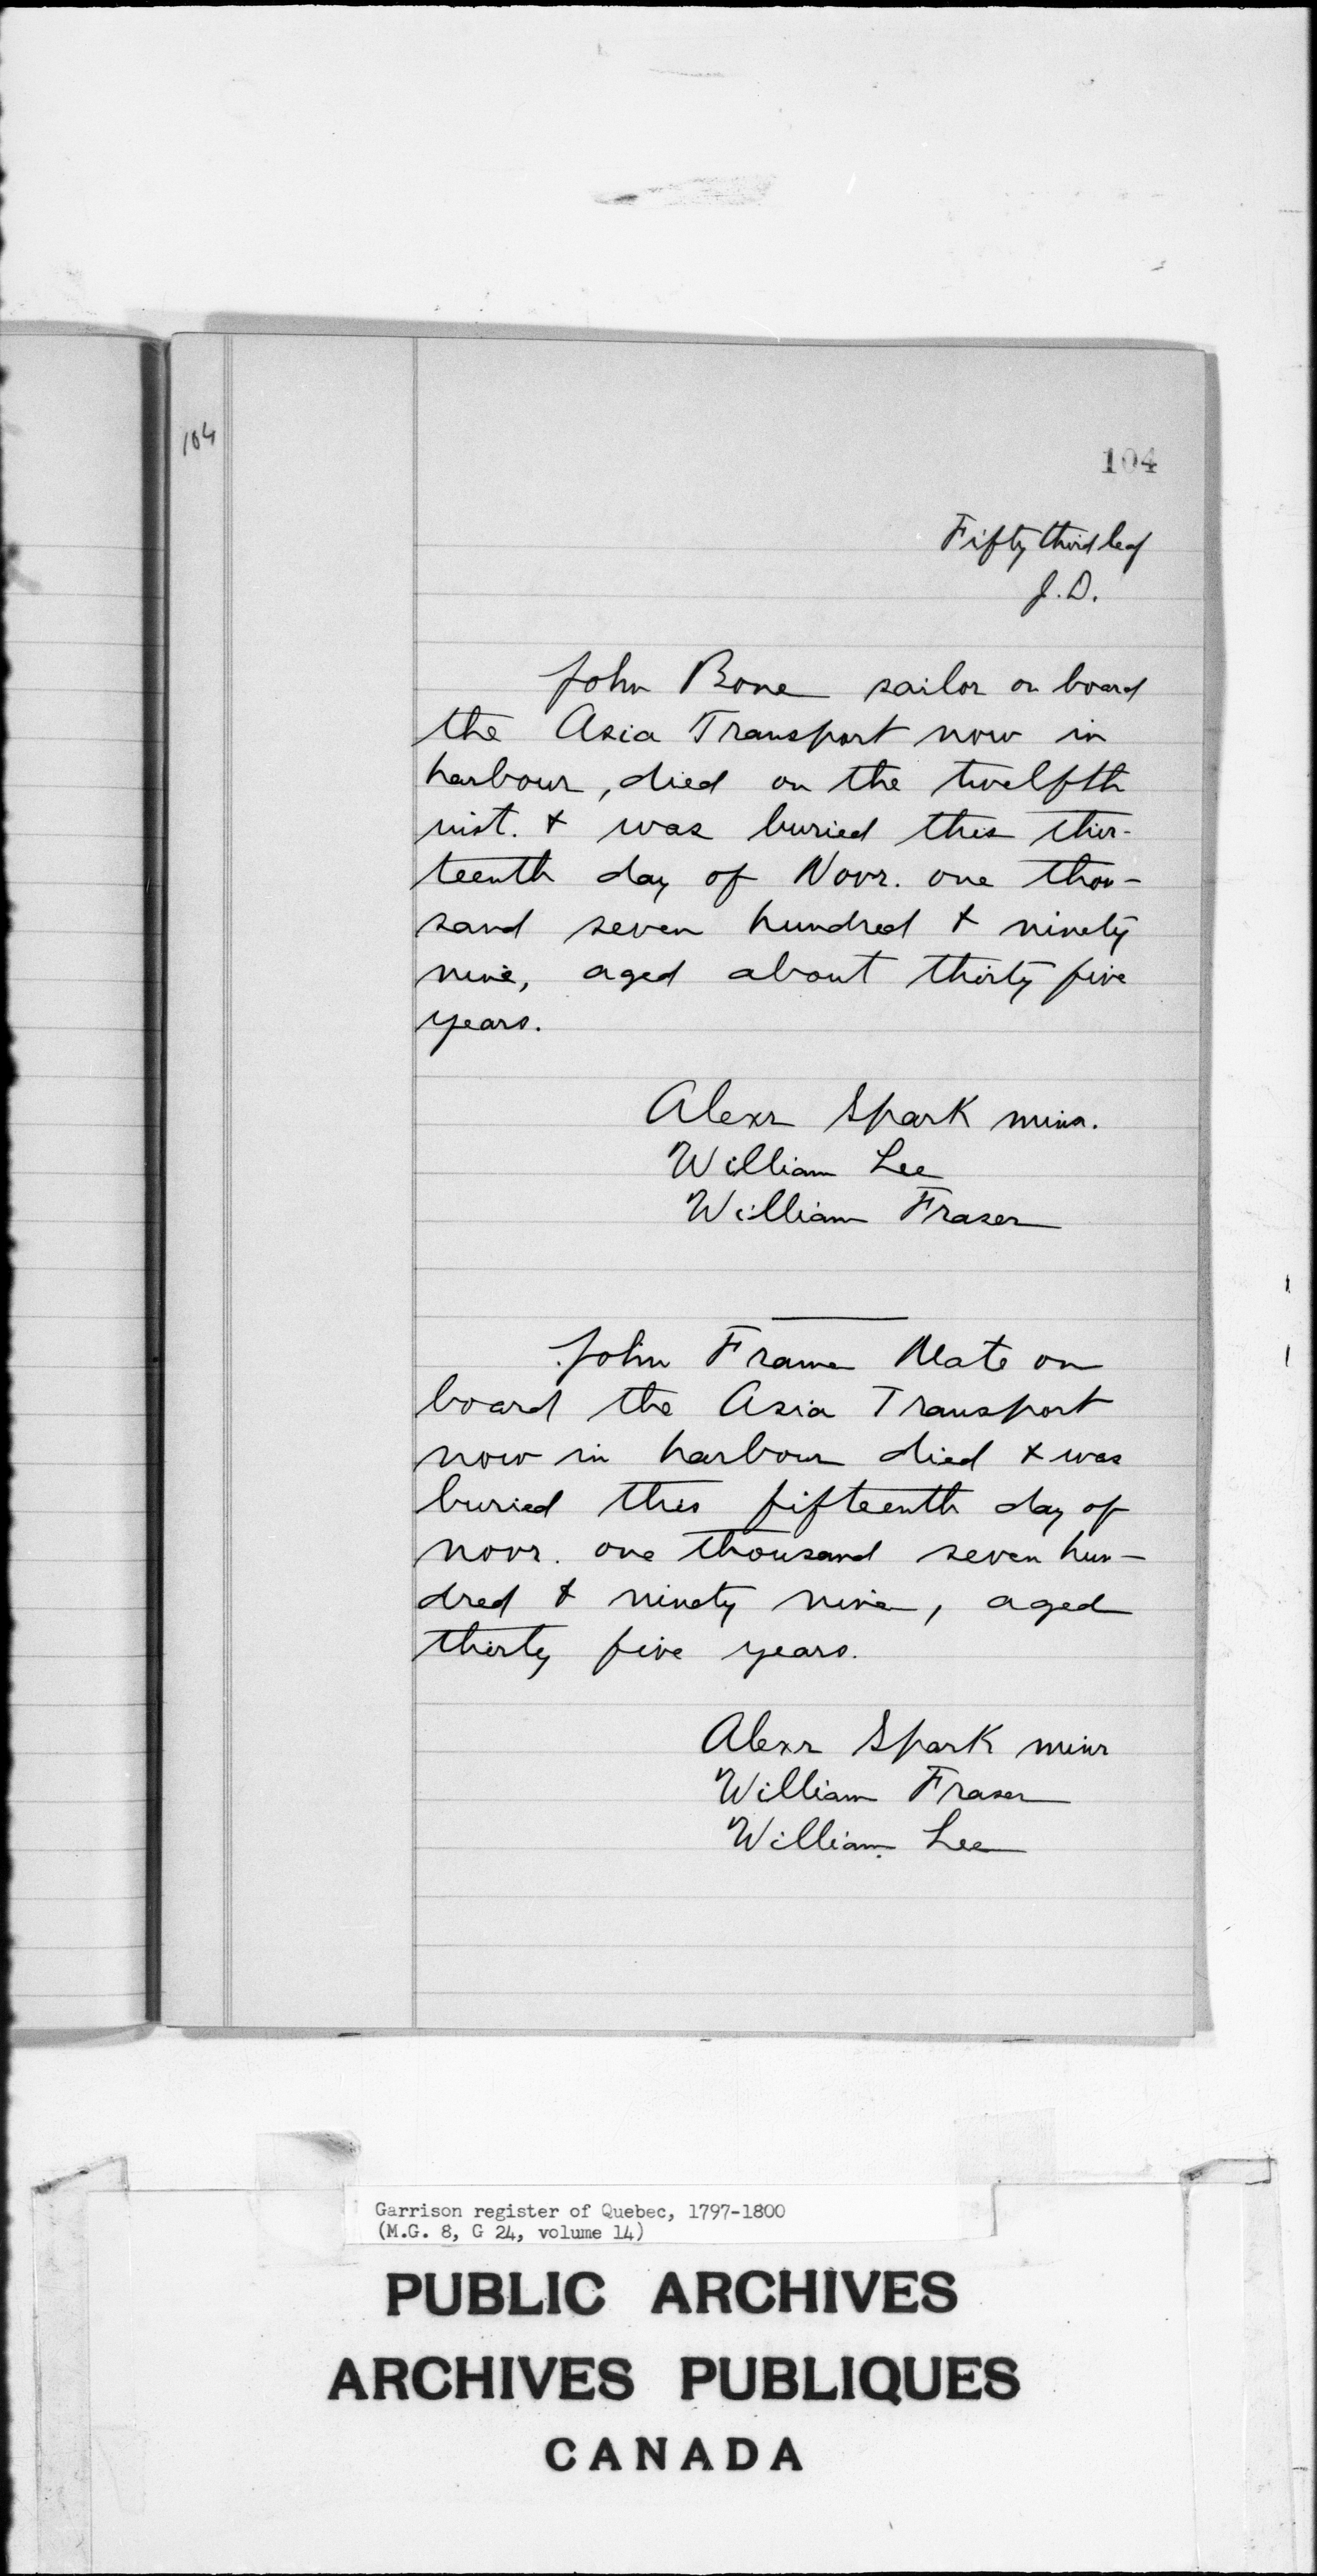 104
104
Fifty third leaf
J.D.
John Bone sailor on board
the Asia Transport now in
harbour, died on the twelfth
inst. & was buried this thir-
teenth day of Novr. one thou-
sand seven hundred & ninety
nine, aged about thirty five
years.
Alexr Spark minr.
William Lee
William Fraser
John Frame Mate on
board the Asia Transport
now in harbour died & was
buried this fifteenth day of
novr. one thousand seven hun-
dred & ninety nine, aged
thirty five years.
Alexr Spark minr
William Fraser
William Lee
Garrison register of Quebec, 1797-1800
(M.G. 8, G 24, volume 14)
PUBLIC ARCHIVES
ARCHIVES PUBLIQUES
CANADA